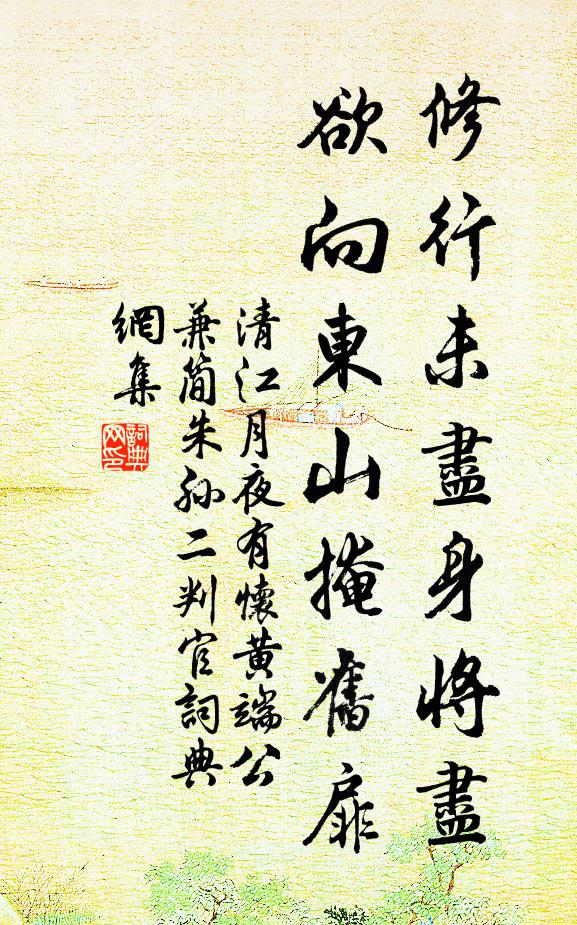 修行未盡身將盡
欲向東山掩舊扉
清江月夜有懷黃端公
兼簡朱孫二判官詞典
網集
詞典
网印